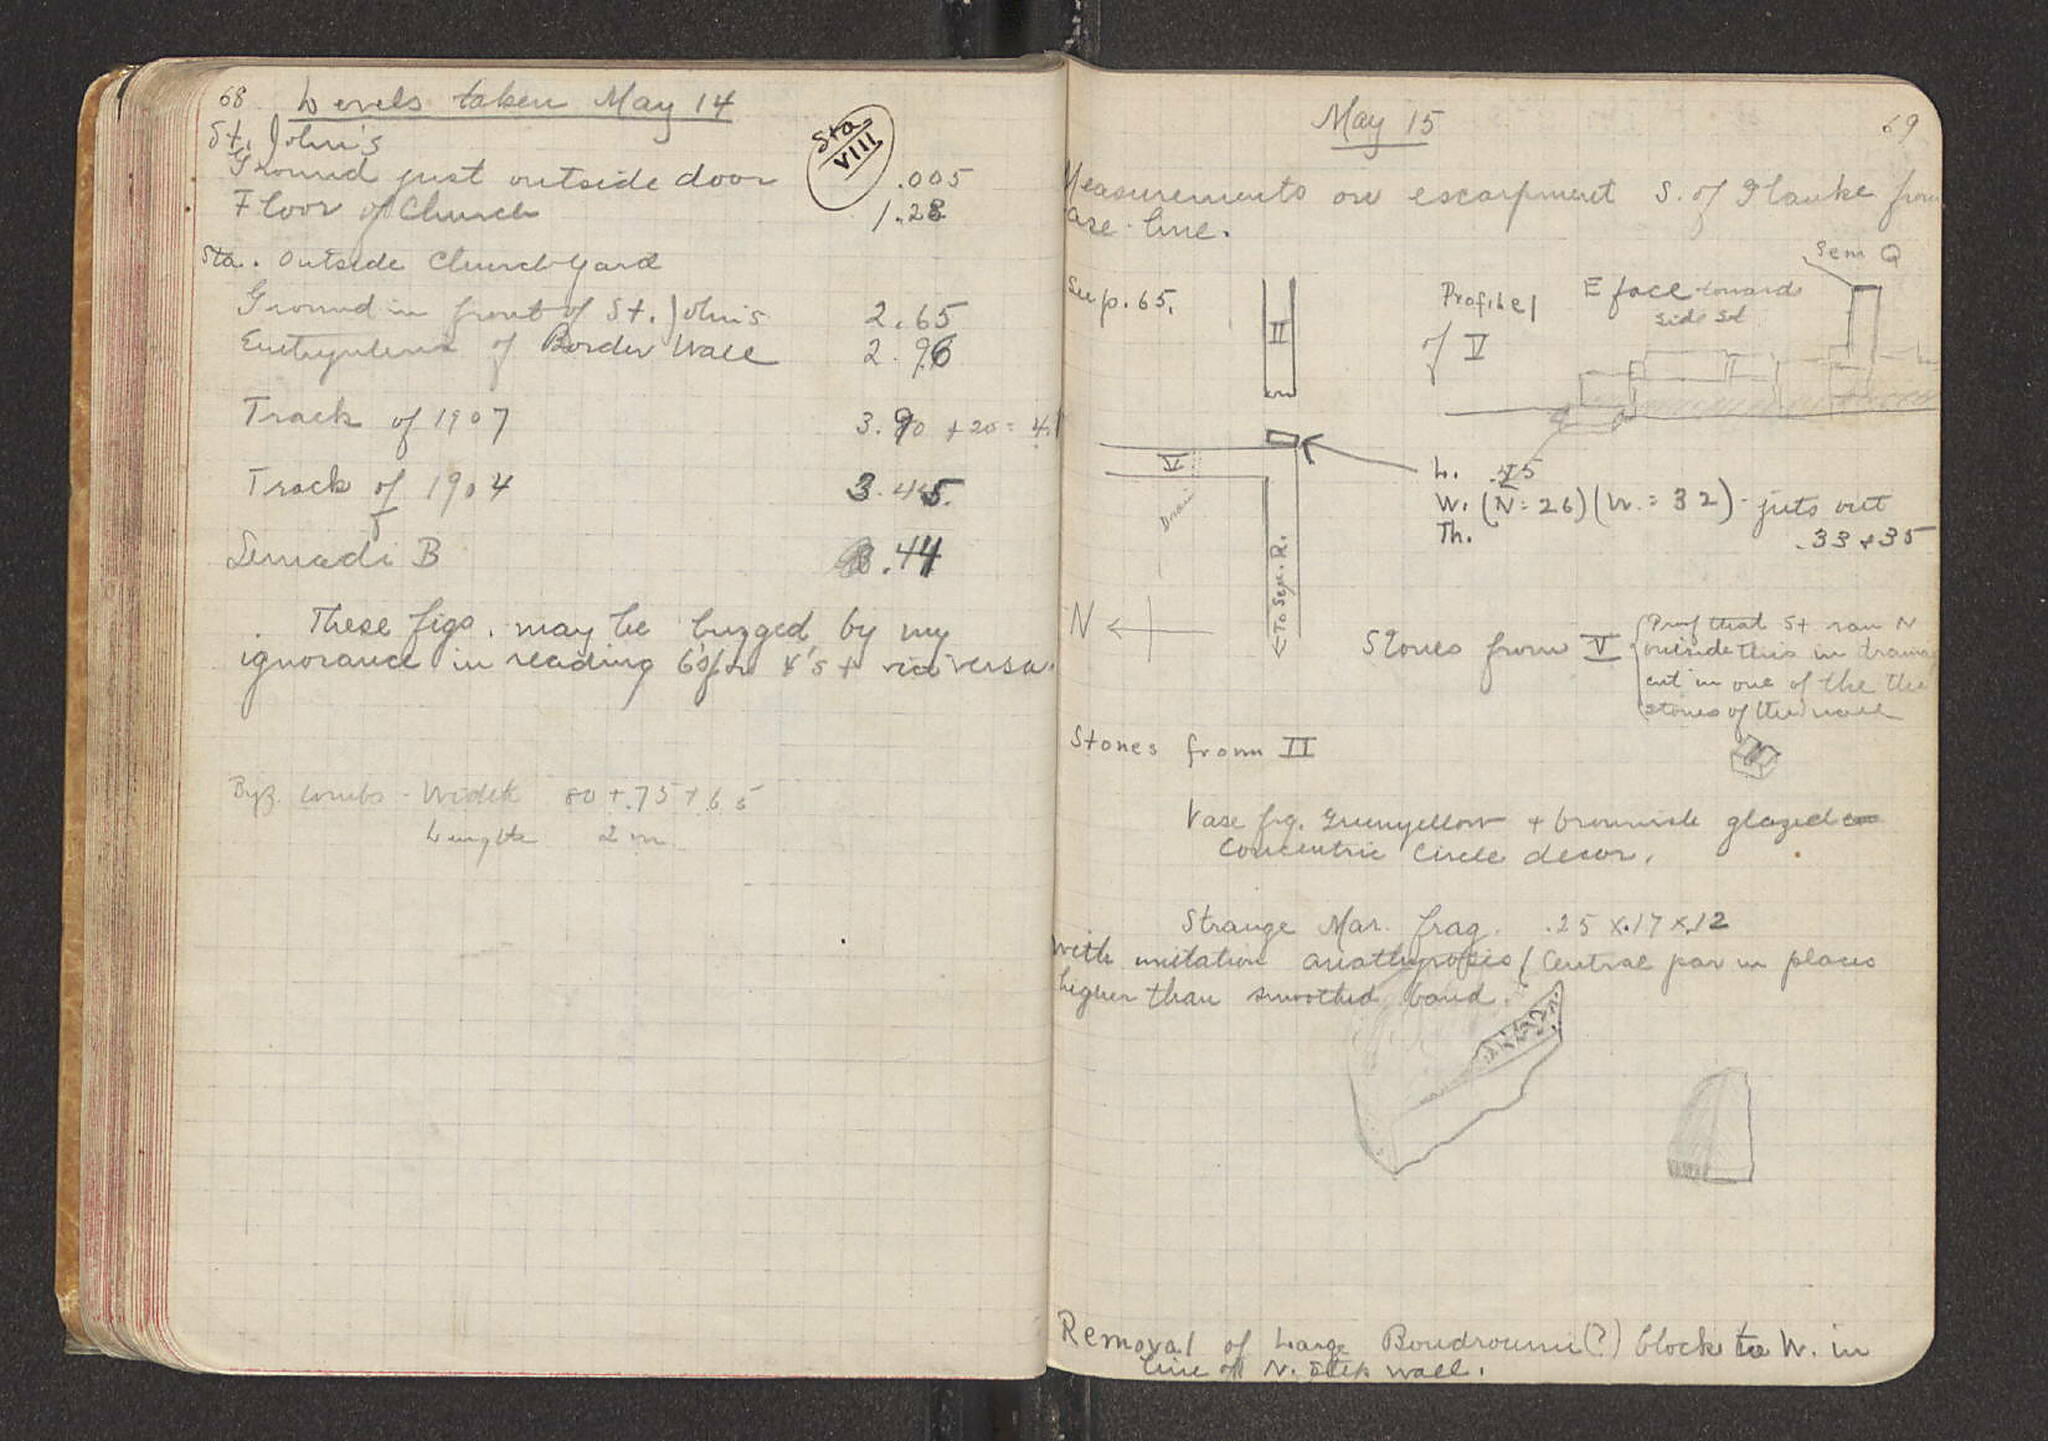 68 Levels taken May 14
St. John's
Sta VIII
Ground just outside door .005
Floor of Church 1.28
Sta. Outside Church Yard
Ground in front of St. John's 2.65
Euthynteria of Border Wall 2.96
Track of 1907 3.90 + 20 = 4.1
Track of 1904 3.45
Semadi B .44
These figs. may be bugged by my
ignorance in reading 6's for 4's + vice versa.
Byz. tombs - Width 80 + .75 + .65
Length 2 m
May 15 69
Measurements on escarpment S. of Glauke from
base line.
See p. 65.
II
Profile
of V
E face towards
side
Sem Q
V
Drain
To Sem. R.
N
L. .45
W. (N = 26) (W. = 32) - juts out
Th. .33 + 35
Stones from V
Proof that St ran N
outside this in drain
cut in one of the
stones of the wall
Stones from II
Vase frg. Greenyellow + brownish glazed
Concentric Circle decor.
Strange Mar. frag. .25 x .17 x .12
with imitation anathyrosis / Central par in places
higher than smoothed band.
Removal of Large Boudroumi (?) block to W. in
line of N. step wall.